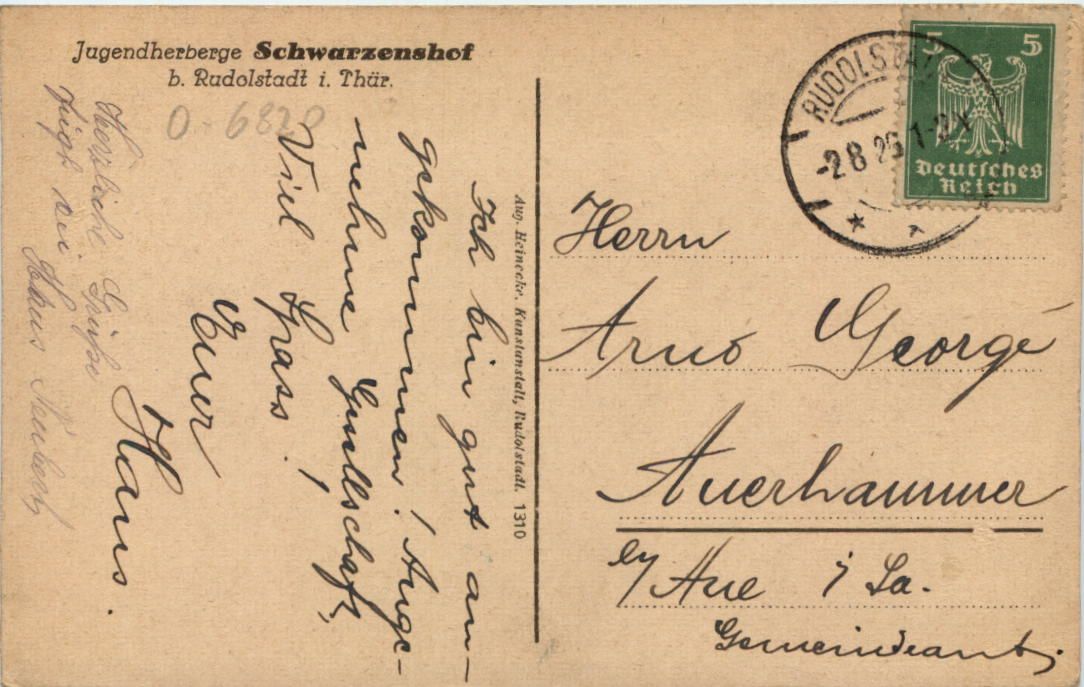 Jugendherberge Schwarzenshof
b. Rudolstadt i. Thür.
0-6820
Ich bin gut an-
gekommen! Ange-
nehme Gesellschaft,
Viel Spass!
Euer
Hans.
Herzliche Grüße
Hans
Aug. Heinecke, Kunstanstalt, Rudolstadt. 1310
RUDOLSTADT
-2 8 26 7-8V
5 5
Deutsches
Reich
Herrn
Arno Georgé
Auerhammer
b/ Aue i Sa.
Gemeindeamt,